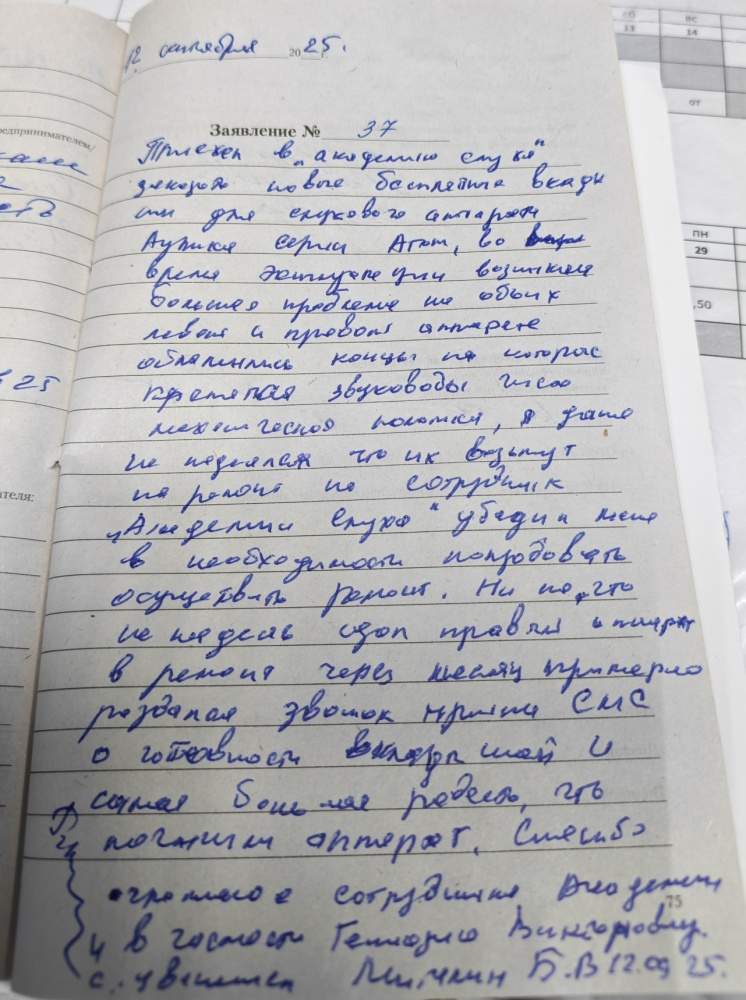 12 сентября 2025.
Заявление № 37
Приехал в "академию слуха"
заказать новые бесплатные вклады
ши для слухового аппарата
Аурика серии Атом, во
время эксплуатации возникла
большая проблема на обоих
левом и правом аппарате
обломились концы на которые
крепятся звуководы чисто
механическая поломка, я даже
не надеялся что их возьмут
на ремонт но сотрудник
"Академии слуха" убедил меня
в необходимости попробовать
осуществить ремонт. Ни на что
не надеясь сдал правый аппарат
в ремонт через месяц примерно
раздался звонок пришла СМС
о готовности вкладышей и
самая большая радость, что
починили аппарат. Спасибо
огромное сотрудникам Академии
и в частности Геннадию Викторовичу.
с уважением Б.В 12.09 25.
75
редпринимателем/
ателя:
сб вс
13 14
от
пн
29
,50